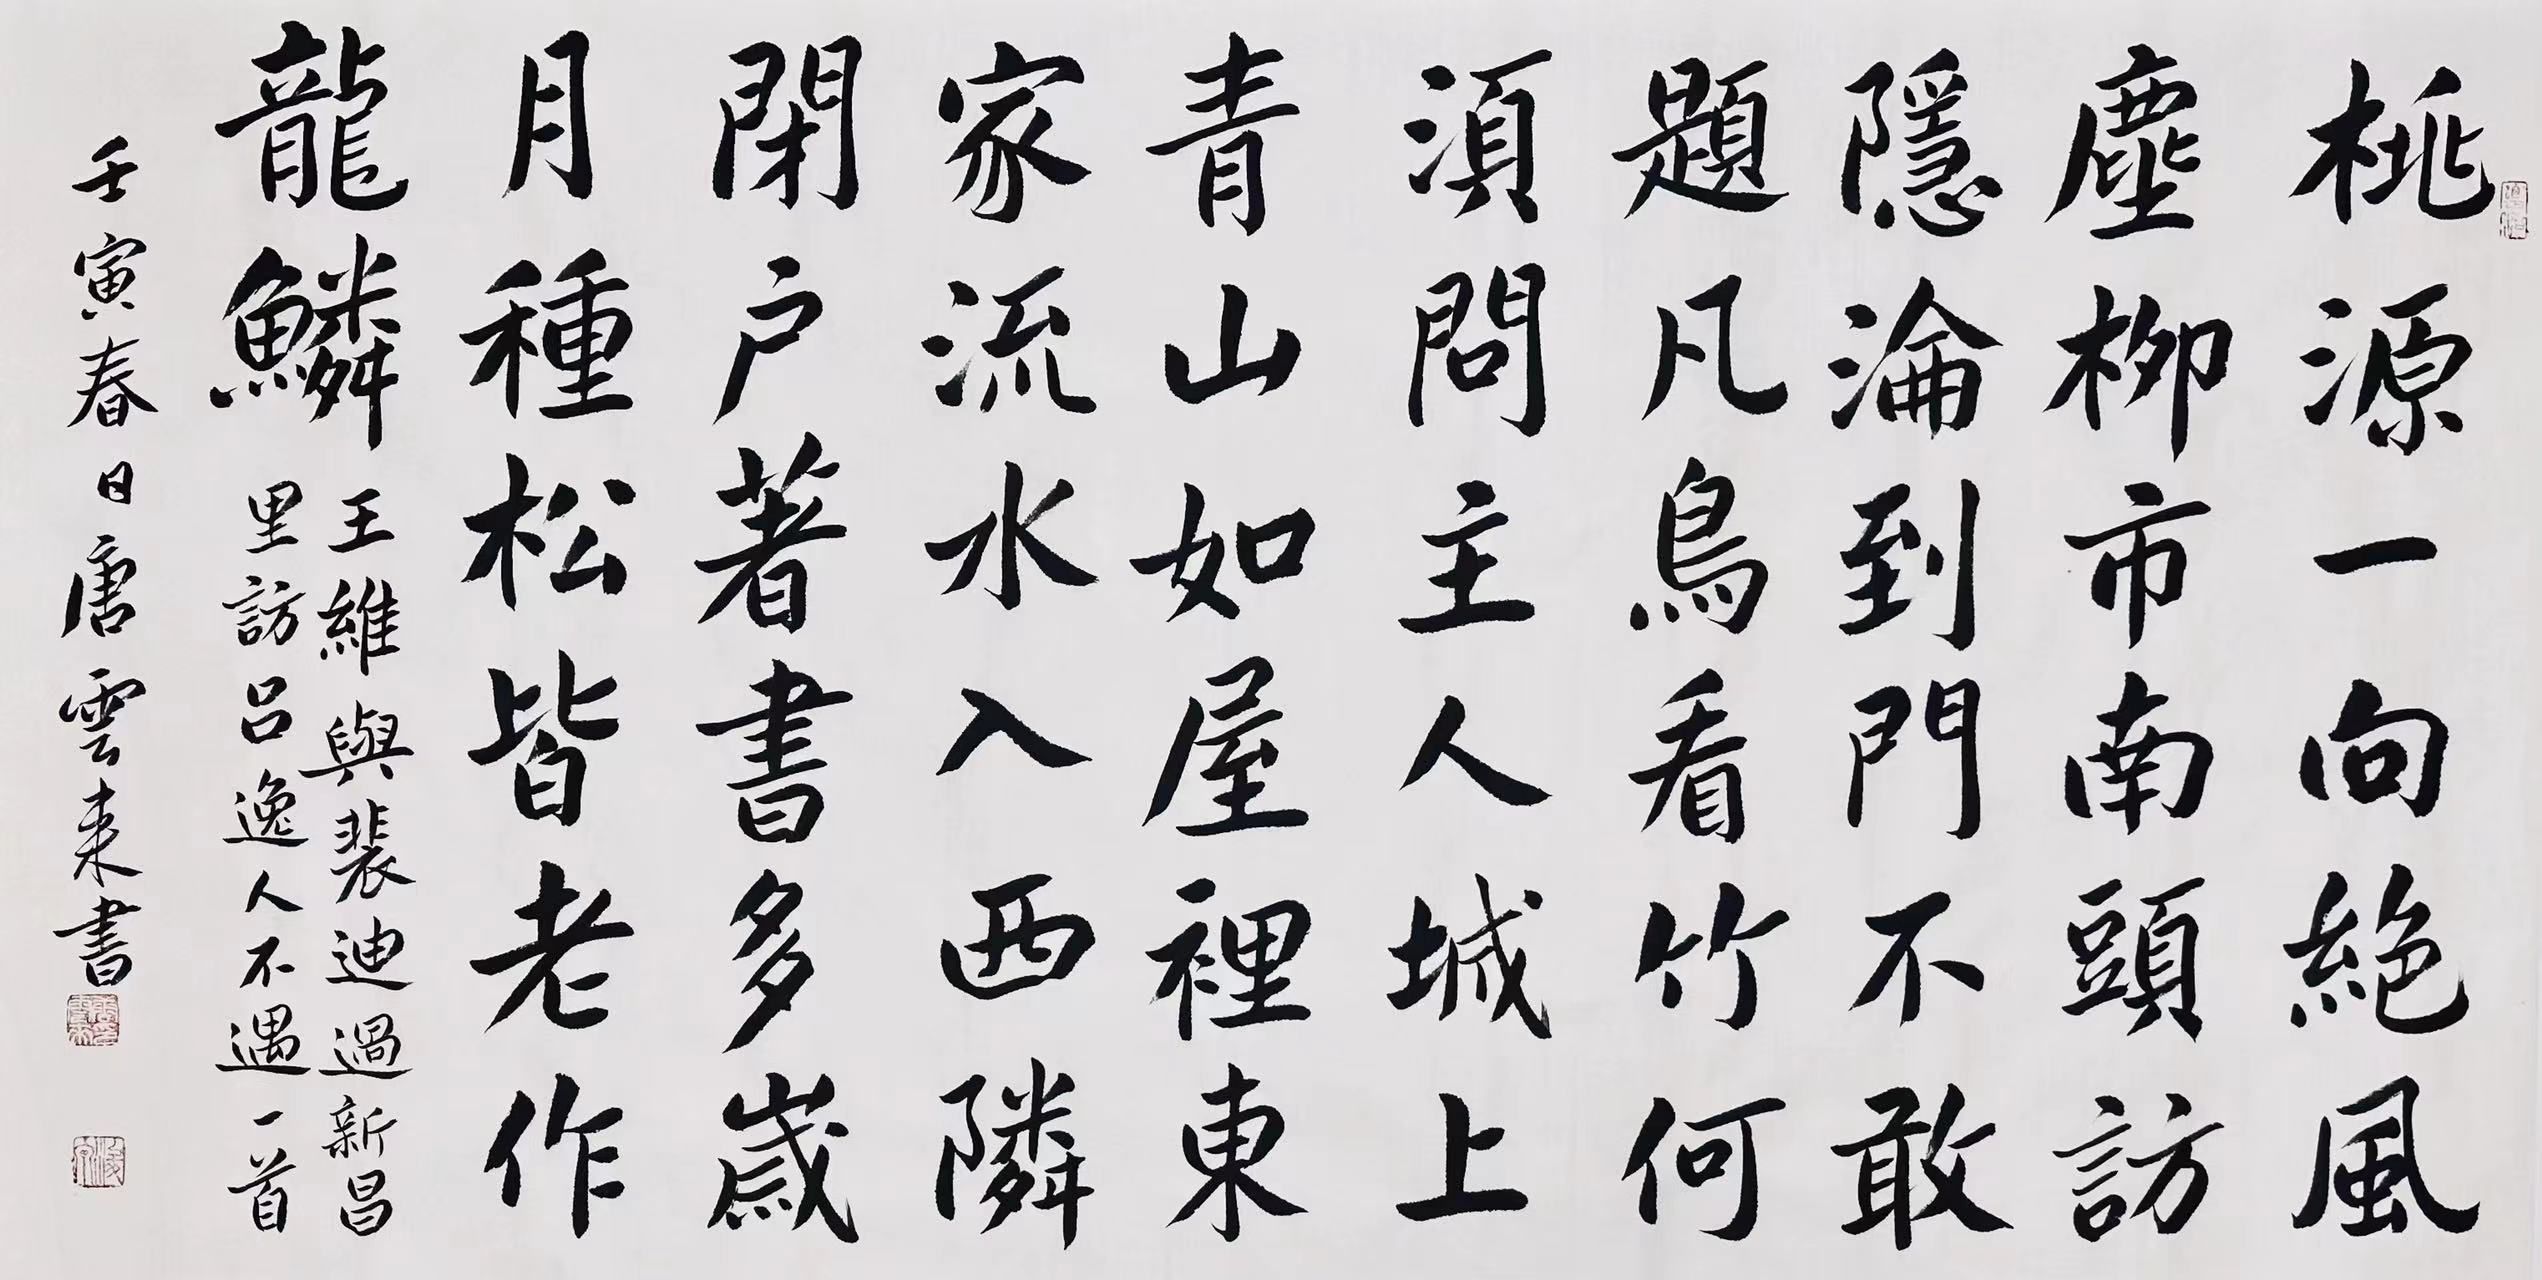 桃源一向絶風
塵柳市南頭訪
隱淪到門不敢
題凡鳥看竹何
須問主人城上
青山如屋裡東
家流水入西隣
閉户著書多歲
月種松皆老作
龍鱗
王維與裴迪過新昌
里訪呂逸人不遇一首
壬寅春日唐雲来書